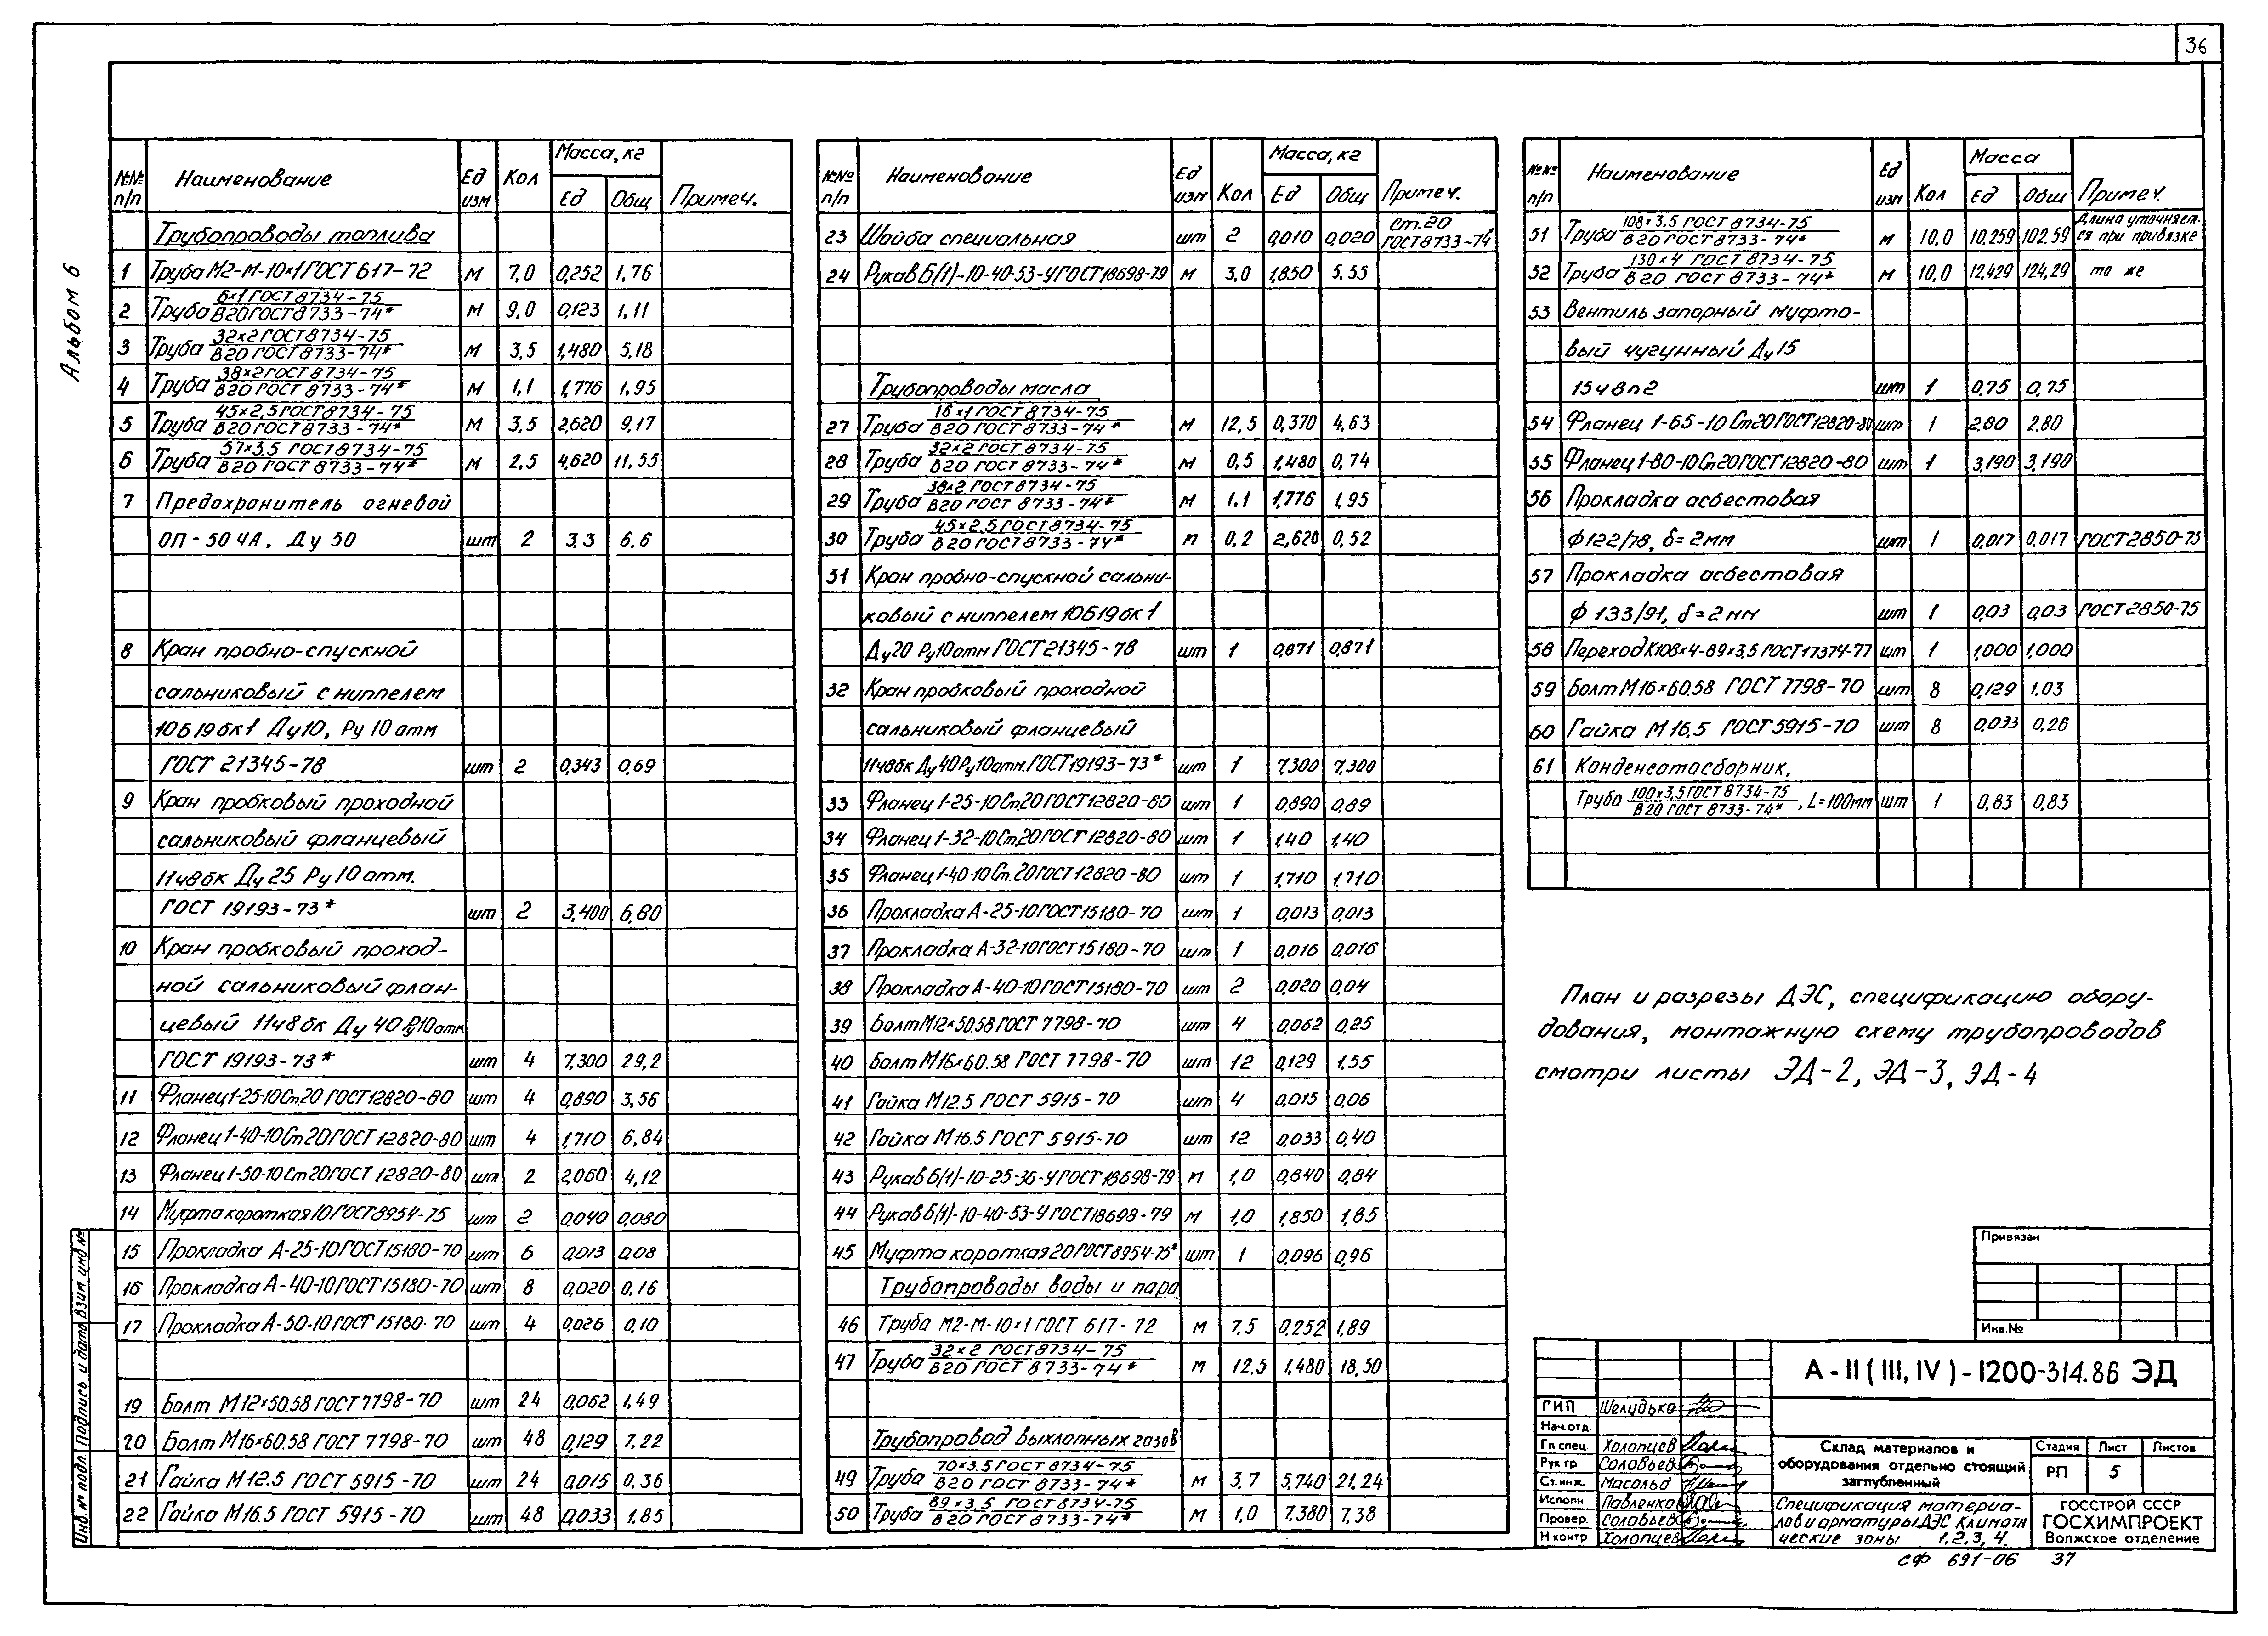 36
Альбом 6
№№ п/п Наименование Ед изм Кол Масса, кг Ед Общ Примеч.
Трубопроводы топлива
1 Труба М2-М-10×1 ГОСТ 617-72 м 7,0 0,252 1,76
2 Труба 6×1 ГОСТ 8734-75 / В20 ГОСТ 8733-74* м 9,0 0,123 1,11
3 Труба 32×2 ГОСТ 8734-75 / В20 ГОСТ 8733-74* м 3,5 1,480 5,18
4 Труба 38×2 ГОСТ 8734-75 / В20 ГОСТ 8733-74* м 1,1 1,776 1,95
5 Труба 45×2,5 ГОСТ 8734-75 / В20 ГОСТ 8733-74* м 3,5 2,620 9,17
6 Труба 57×3,5 ГОСТ 8734-75 / В20 ГОСТ 8733-74* м 2,5 4,620 11,55
7 Предохранитель огневой
ОП-50 ЧА, Ду 50 шт 2 3,3 6,6
8 Кран пробно-спускной
сальниковый с ниппелем
10Б19бк1 Ду10, Ру 10 атм
ГОСТ 21345-78 шт 2 0,343 0,69
9 Кран пробковый проходной
сальниковый фланцевый
11ч8бк Ду 25 Ру 10 атм.
ГОСТ 19193-73* шт 2 3,400 6,80
10 Кран пробковый проход-
ной сальниковый флан-
цевый 11ч8бк Ду 40 Ру10атм
ГОСТ 19193-73* шт 4 7,300 29,2
11 Фланец 1-25-10 Ст.20 ГОСТ 12820-80 шт 4 0,890 3,56
12 Фланец 1-40-10 Ст 20 ГОСТ 12820-80 шт 4 1,710 6,84
13 Фланец 1-50-10 Ст 20 ГОСТ 12820-80 шт 2 2,060 4,12
14 Муфта короткая 10 ГОСТ 8954-75 шт 2 0,040 0,080
15 Прокладка А-25-10 ГОСТ 15180-70 шт 6 0,013 0,08
16 Прокладка А-40-10 ГОСТ 15180-70 шт 8 0,020 0,16
17 Прокладка А-50-10 ГОСТ 15180-70 шт 4 0,026 0,10
19 Болт М12×50.58 ГОСТ 7798-70 шт 24 0,062 1,49
20 Болт М16×60.58 ГОСТ 7798-70 шт 48 0,129 7,22
21 Гайка М12.5 ГОСТ 5915-70 шт 24 0,015 0,36
22 Гайка М16.5 ГОСТ 5915-70 шт 48 0,033 1,85
№№ п/п Наименование Ед изм Кол Масса, кг Ед Общ Примеч.
23 Шайба специальная шт 2 0,010 0,020 Ст.20 ГОСТ 8733-74*
24 Рукав Б(1)-10-40-53-У ГОСТ 18698-79 м 3,0 1,850 5,55
Трубопроводы масла
27 Труба 16×1 ГОСТ 8734-75 / В20 ГОСТ 8733-74* м 12,5 0,370 4,63
28 Труба 32×2 ГОСТ 8734-75 / В20 ГОСТ 8733-74* м 0,5 1,480 0,74
29 Труба 38×2 ГОСТ 8734-75 / В20 ГОСТ 8733-74* м 1,1 1,776 1,95
30 Труба 45×2,5 ГОСТ 8734-75 / В20 ГОСТ 8733-74* п 0,2 2,620 0,52
31 Кран пробно-спускной сальни-
ковый с ниппелем 10Б19бк1
Ду20 Ру10атм ГОСТ 21345-78 шт 1 0,871 0,871
32 Кран пробковый проходной
сальниковый фланцевый
11ч8бк Ду 40 Ру10атм. ГОСТ 19193-73* шт 1 7,300 7,300
33 Фланец 1-25-10 Ст.20 ГОСТ 12820-80 шт 1 0,890 0,89
34 Фланец 1-32-10 Ст.20 ГОСТ 12820-80 шт 1 1,40 1,40
35 Фланец 1-40-10 Ст.20 ГОСТ 12820-80 шт 1 1,710 1,710
36 Прокладка А-25-10 ГОСТ 15180-70 шт 1 0,013 0,013
37 Прокладка А-32-10 ГОСТ 15180-70 шт 1 0,016 0,016
38 Прокладка А-40-10 ГОСТ 15180-70 шт 2 0,020 0,04
39 Болт М12×50.58 ГОСТ 7798-70 шт 4 0,062 0,25
40 Болт М16×60.58 ГОСТ 7798-70 шт 12 0,129 1,55
41 Гайка М12.5 ГОСТ 5915-70 шт 4 0,015 0,06
42 Гайка М16.5 ГОСТ 5915-70 шт 12 0,033 0,40
43 Рукав Б(1)-10-25-36-У ГОСТ 18698-79 м 1,0 0,840 0,84
44 Рукав Б(1)-10-40-53-У ГОСТ 18698-79 м 1,0 1,850 1,85
45 Муфта короткая 20 ГОСТ 8954-75* шт 1 0,096 0,96
Трубопроводы воды и пара
46 Труба М2-М-10×1 ГОСТ 617-72 м 7,5 0,252 1,89
47 Труба 32×2 ГОСТ 8734-75 / В20 ГОСТ 8733-74* м 12,5 1,480 18,50
Трубопровод выхлопных газов
49 Труба 70×3.5 ГОСТ 8734-75 / В20 ГОСТ 8733-74* м 3,7 5,740 21,24
50 Труба 89×3,5 ГОСТ 8734-75 / В20 ГОСТ 8733-74* м 1,0 7,380 7,38
№№ п/п Наименование Ед изм Кол Масса Ед Общ Примеч.
51 Труба 108×3,5 ГОСТ 8734-75 / В20 ГОСТ 8733-74* м 10,0 10,259 102,59 Длина уточняет-ся при привязке
52 Труба 130×4 ГОСТ 8734-75 / В20 ГОСТ 8733-74* м 10,0 12,429 124,29 то же
53 Вентиль запорный муфто-
вый чугунный Ду15
15ч8п2 шт 1 0,75 0,75
54 Фланец 1-65-10 Ст20 ГОСТ 12820-80 шт 1 2,80 2,80
55 Фланец 1-80-10 Ст.20 ГОСТ 12820-80 шт 1 3,190 3,190
56 Прокладка асбестовая
ф122/78, δ=2мм шт 1 0,017 0,017 ГОСТ 2850-75
57 Прокладка асбестовая
ф 133/91, δ=2мм шт 1 0,03 0,03 ГОСТ 2850-75
58 Переход К108×4-89×3,5 ГОСТ 17374-77 шт 1 1,000 1,000
59 Болт М16×60.58 ГОСТ 7798-70 шт 8 0,129 1,03
60 Гайка М 16.5 ГОСТ 5915-70 шт 8 0,033 0,26
61 Конденсатосборник,
Труба 100×3,5 ГОСТ 8734-75 / В20 ГОСТ 8733-74*, L=100мм шт 1 0,83 0,83
План и разрезы ДЭС, спецификацию обору-
дования, монтажную схему трубопроводов
смотри листы ЭД-2, ЭД-3, ЭД-4
Привязан
Инв.№
А-II(III, IV)-1200-314.86 ЭД
ГИП Шелудько
Нач.отд.
Гл спец. Холопцев
Рук гр Соловьев
Ст. инж. Масольд
Исполн Павленко
Провер. Соловьев
Н контр Холопцев
Склад материалов и
оборудования отдельно стоящий
заглубленный
Стадия Лист Листов
РП 5
Спецификация материа-
лов и арматуры ДЭС Климати
ческие зоны 1,2,3,4.
ГОССТРОЙ СССР
ГОСХИМПРОЕКТ
Волжское отделение
сф 691-06 37
Инв.№ подл. Подпись и дата Взам инв №